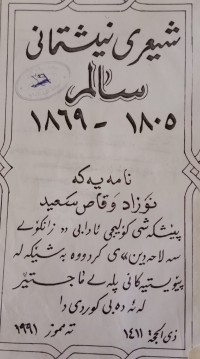 شیعری نیشتمانی
سالم
١٨٠٥ - ١٨٦٩
نامەیەکە
نەوزاد وەقاص سەعید
پێشکەشی کۆلیجی ئادابی زانکۆی
سەلاحەدین»ی کردووە بەشێکە لە
پێویستیەکانی پلەی ماجستێر
لە ئەدەبی کوردی دا
ذی الحجة ١٤١١ تەمموز ١٩٩١